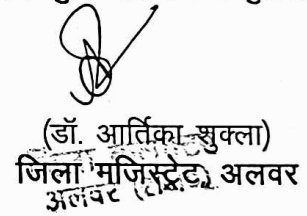 (डॉ. आर्तिका शुक्ला)
जिला मजिस्ट्रेट, अलवर
अलवर (राज.)